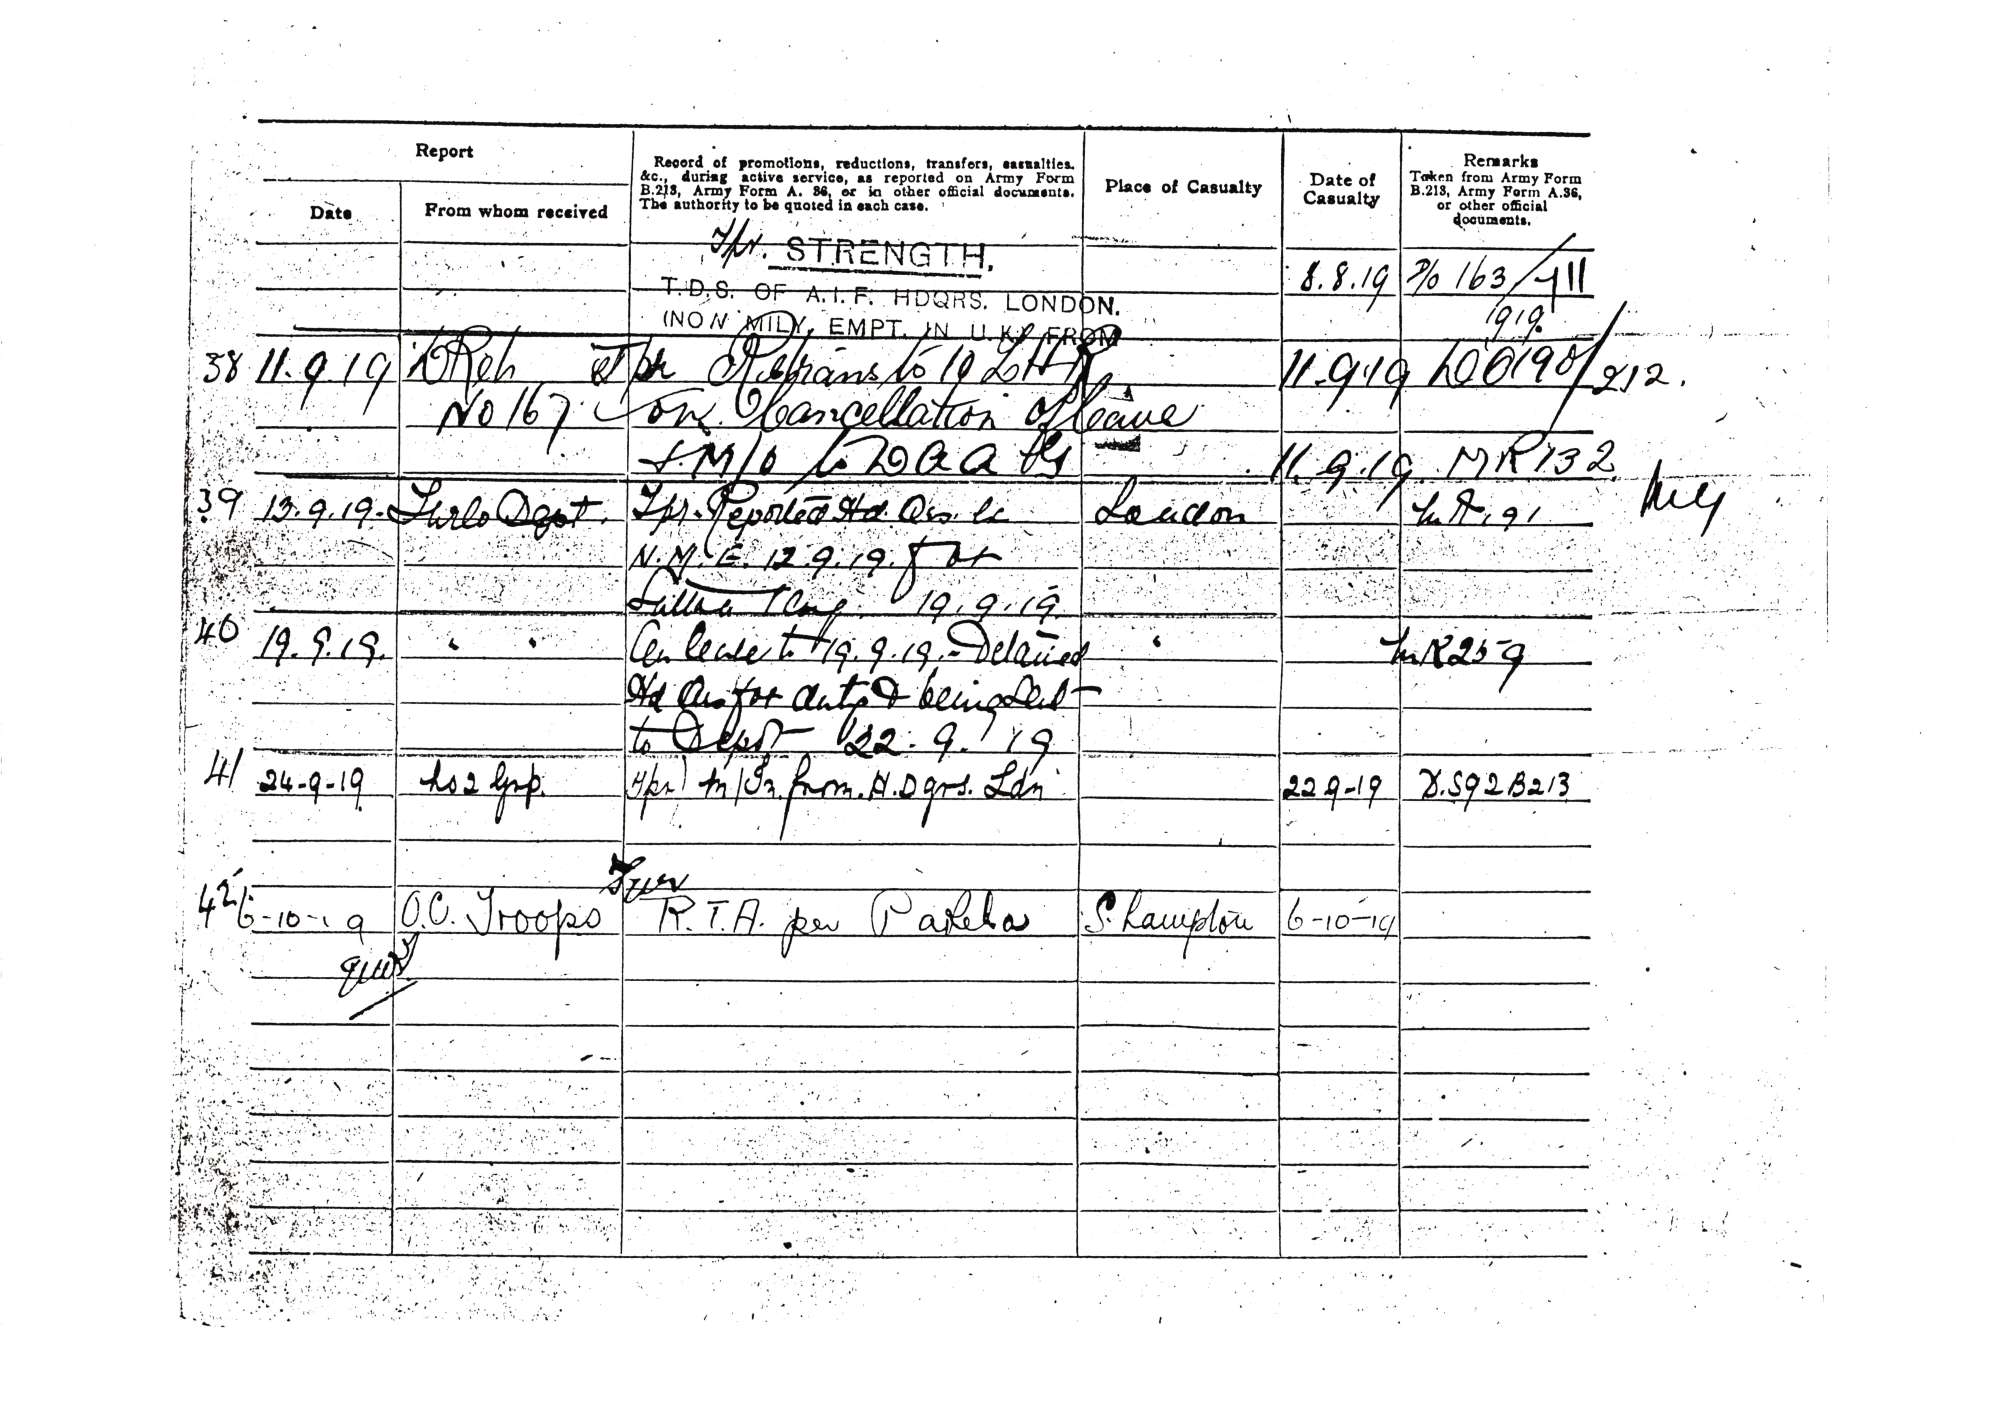 Report
Date
From whom received
Record of promotions, reductions, transfers, casualties,
&c., during active service, as reported on Army Form
B.213, Army Form A. 36, or in other official documents.
The authority to be quoted in each case.
Place of Casualty
Date of
Casualty
Remarks
Taken from Army Form
B.213, Army Form A.36,
or other official
documents.
Tpr. STRENGTH,
T.D.S. OF A.I.F. HDQRS. LONDON. 8.8.19 163/711
(NON MILY. EMPT. IN U.K.) FROM 1919
38 11.9.19 Tpr Retrans to 10 LHR 11.9.19 DO 198/212.
No 167 on Cancellation of leave
M/o to 11.9.19 MR 132
39 13.9.19. Furlo Depot. Tpr. Reported Hd Qrs. London 91
N.M.E. 12.9.19. for
19.9.19
40 19.9.19. " " On leave to 19.9.19. Detained " MR259
Hd Qrs for duty & being sent
to Depot 22.9.19
41 24-9-19 No 2 Grp. Tpr M/In from H.Dqrs. Ldn 22 9-19 D.S92 B213
Tpr
42 6-10-19 O.C. Troops R.T.A. per Pakeha S. hampton 6-10-19